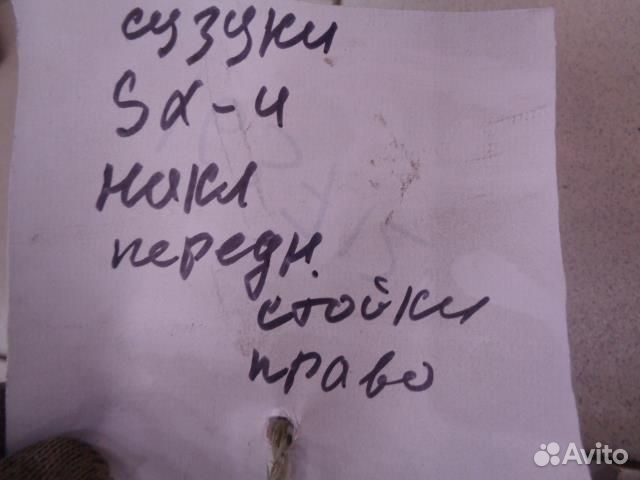 сузуки
Sx-4
накл
передн.
стойки
право
Avito